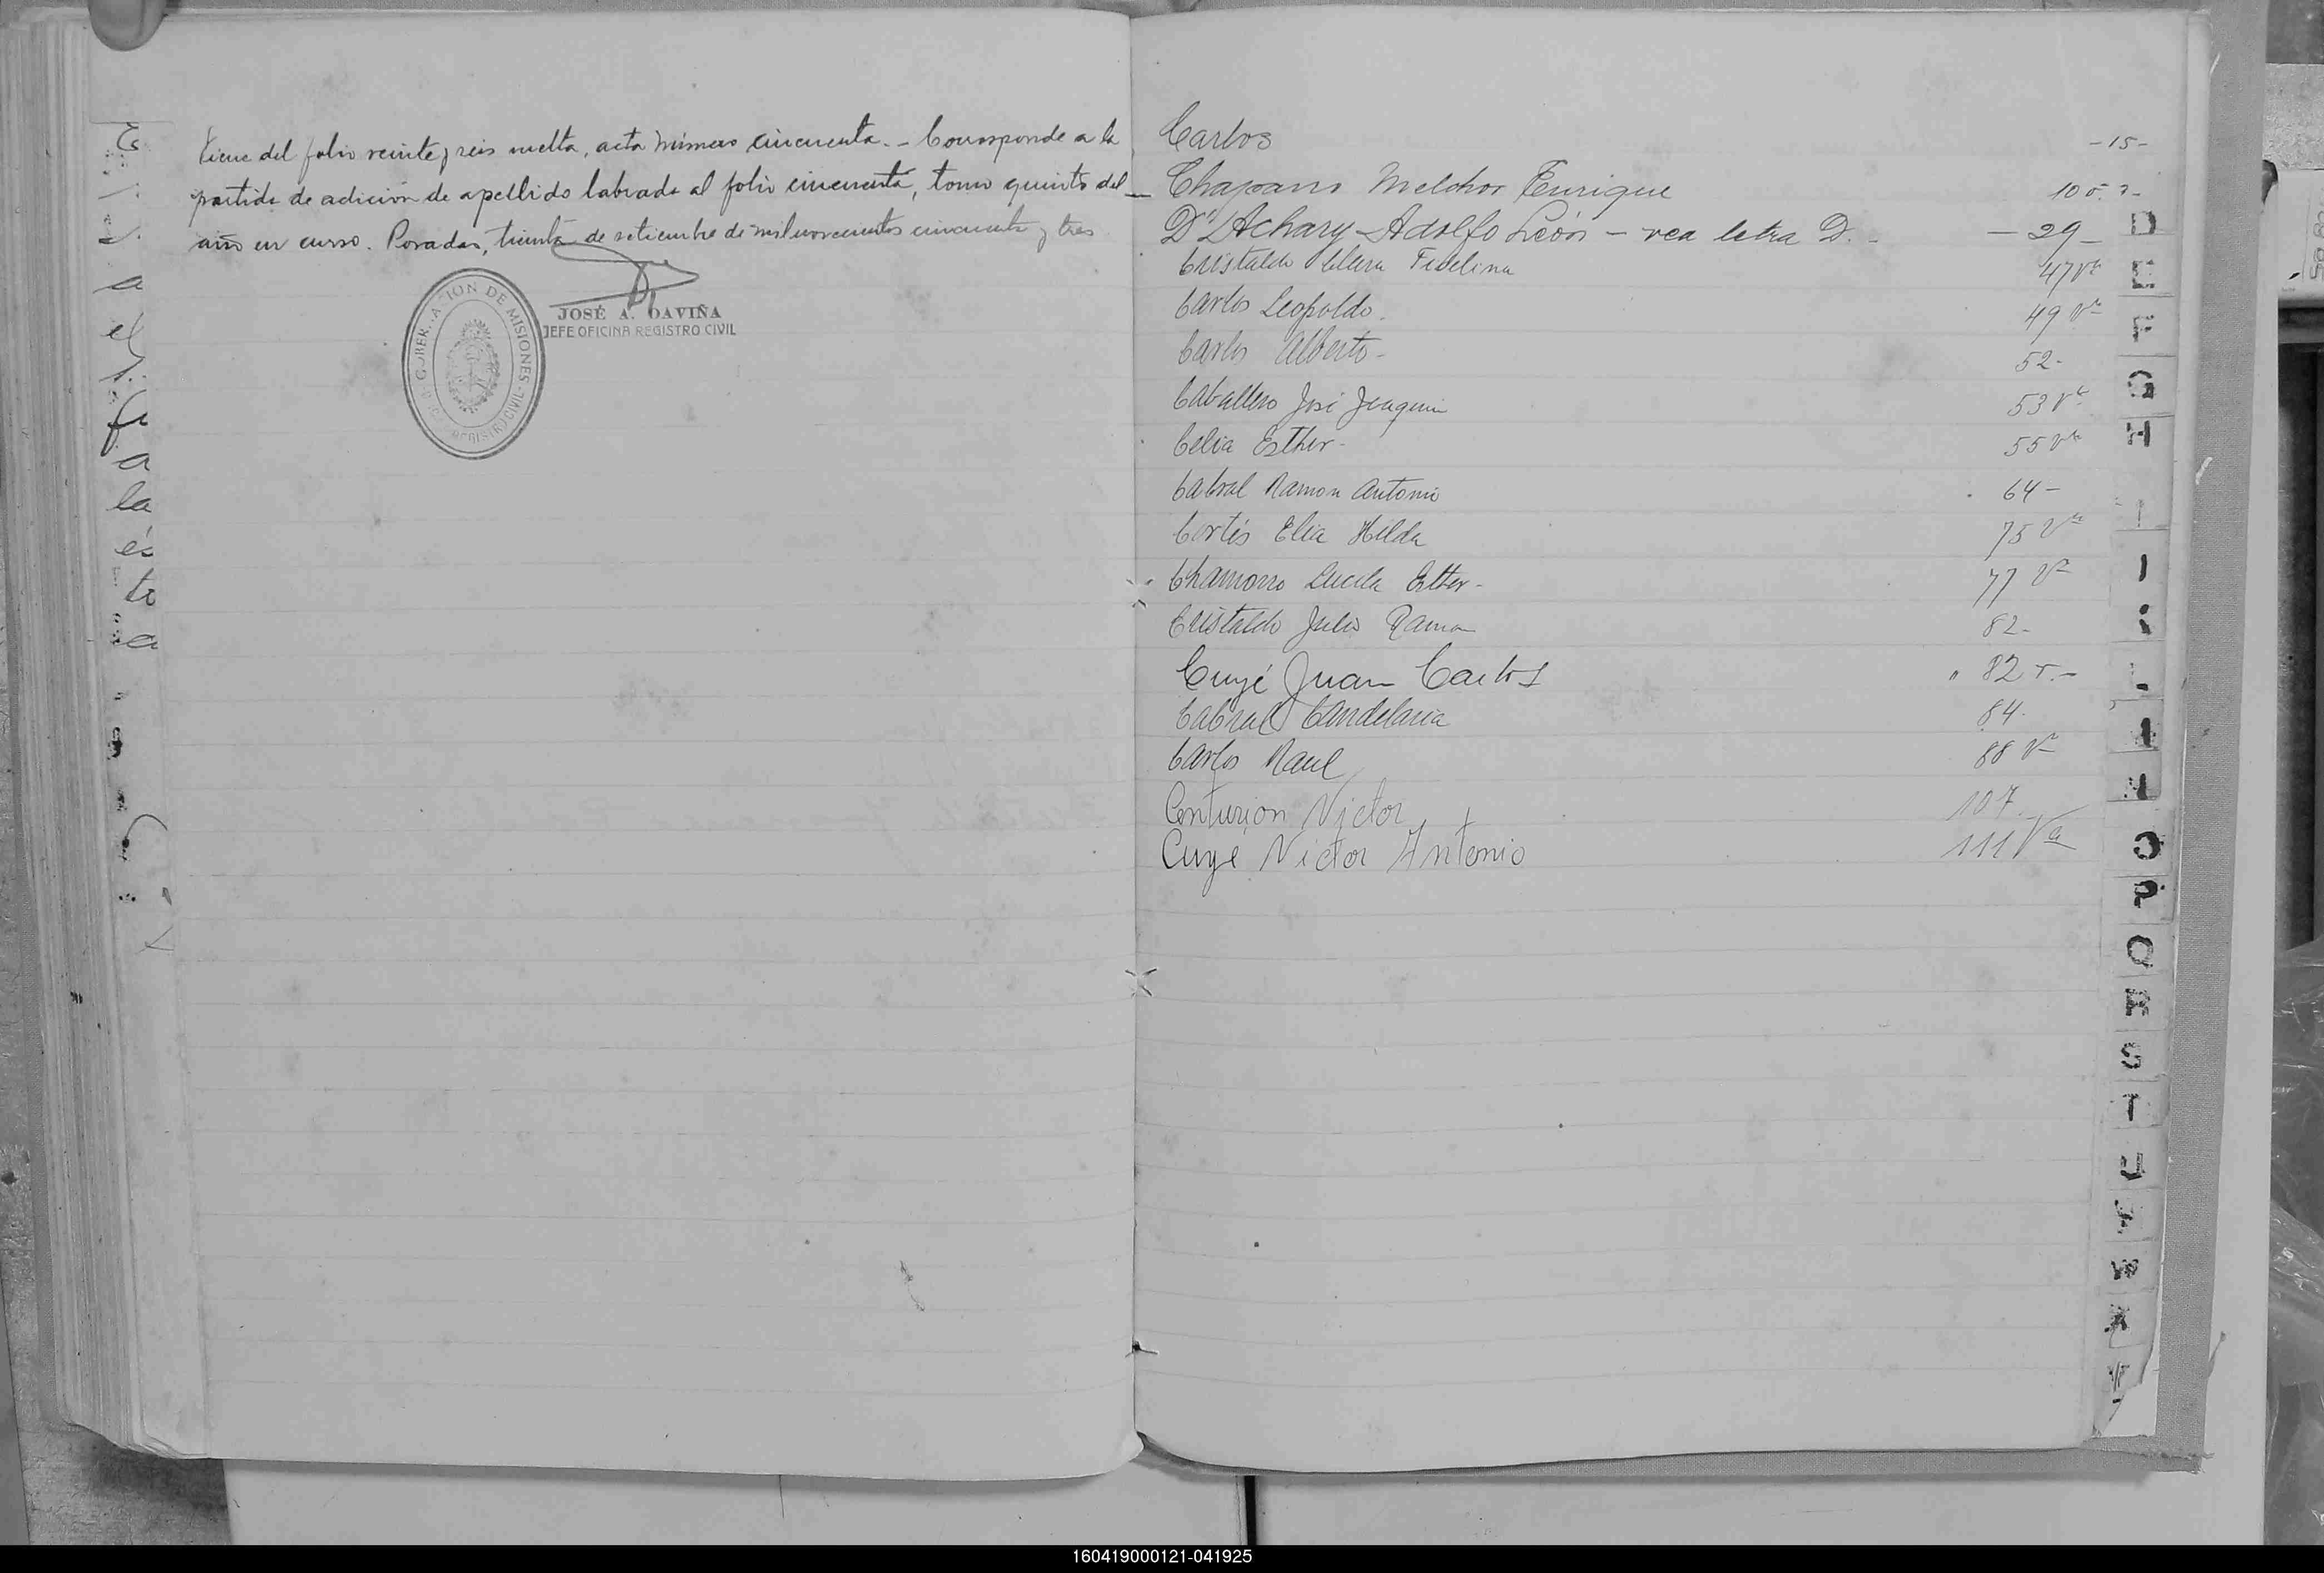 Viene del folio veinte y seis vuelta, acta número cincuenta. - Corresponde a la
partida de adición de apellido labrada al folio cincuenta, tomo quinto del
año en curso. Posadas, treinta de setiembre de mil novecientos cincuenta y tres
JOSÉ A. DAVIÑA
JEFE OFICINA REGISTRO CIVIL
DE MISIONES
REGISTRO CIVIL
a
el
a
la
és
to
a
Carlos -15-
Melchor Enrique
D'Achary Adolfo León - vea letra D. - - 29 -
Cristaldo Clara Fidelina 47 Vta
Carlos Leopoldo. 49 Vta
Carlos Alberto - 52 -
Caballero José Joaquin 53 Vta
Celia Esther - 55 Vta
Cabral Ramon Antonio 64 -
Cortés Elia Hilda 75 Vta
Chamorro Lucila Esther - 77 Vta
Cristaldo Julio Ramon 82 -
Cuyé Juan Carlos " 82 v. -
Cabral Candelaria 84 -
Carlos Raul 88 Vta
Centurion Victor 107
Cuye Victor Antonio 111 Vta
D
E
F
G
H
I
L
M
O
P
Q
R
S
T
U
W
X
160419000121-041925